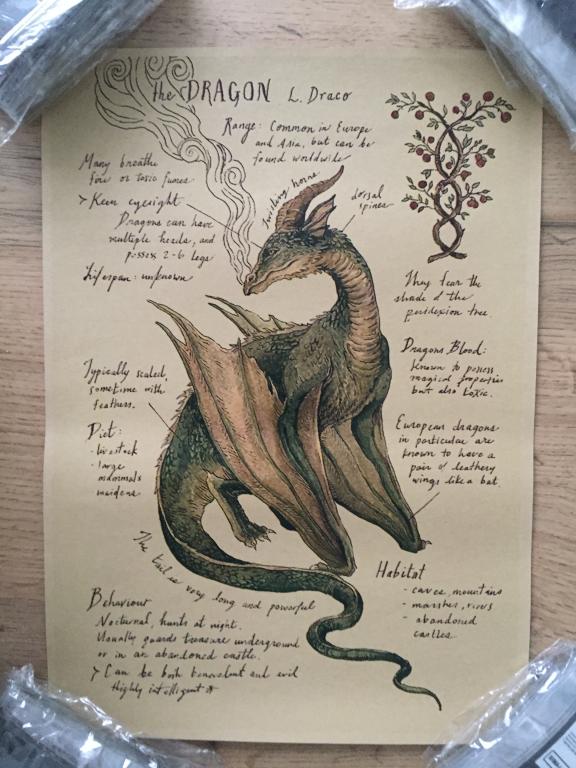 the DRAGON L. Draco
Range: Common in Europe
and Asia, but can be
found worldwide
Many breathe
fire or toxic fumes
> Keen eyesight
Dragons can have
multiple heads, and
possess 2-6 legs
Lifespan: unknown
twisting horns
dorsal
spines
They fear the
shade of the
peridexion tree.
Dragons Blood:
known to possess
magical properties
but also toxic.
Typically scaled,
sometime with
feathers.
Diet:
- livestock
- large
mammals
maidens
European dragons
in particular are
known to have a
pair of leathery
wings like a bat.
The tail is very long and powerful
Habitat
- caves, mountains
- marshes, rivers
- abandoned
castles.
Behaviour
Nocturnal, hunts at night.
Usually guards treasure underground
or in an abandoned castle.
> Can be both benevolent and evil
Highly intelligent